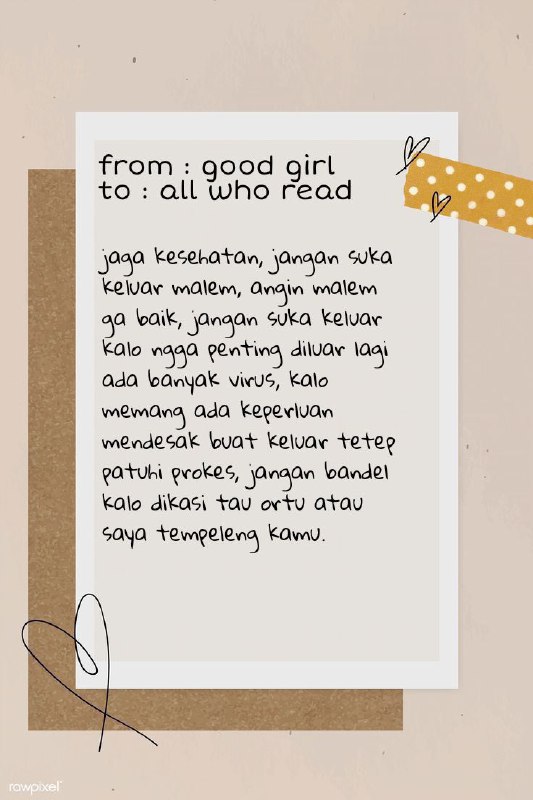 from : good girl
to : all who read
jaga kesehatan, jangan suka
keluar malem, angin malem
ga baik, jangan suka keluar
kalo ngga penting diluar lagi
ada banyak virus, kalo
memang ada keperluan
mendesak buat keluar tetep
patuhi prokes, jangan bandel
kalo dikasi tau ortu atau
saya tempeleng kamu.
rawpixel